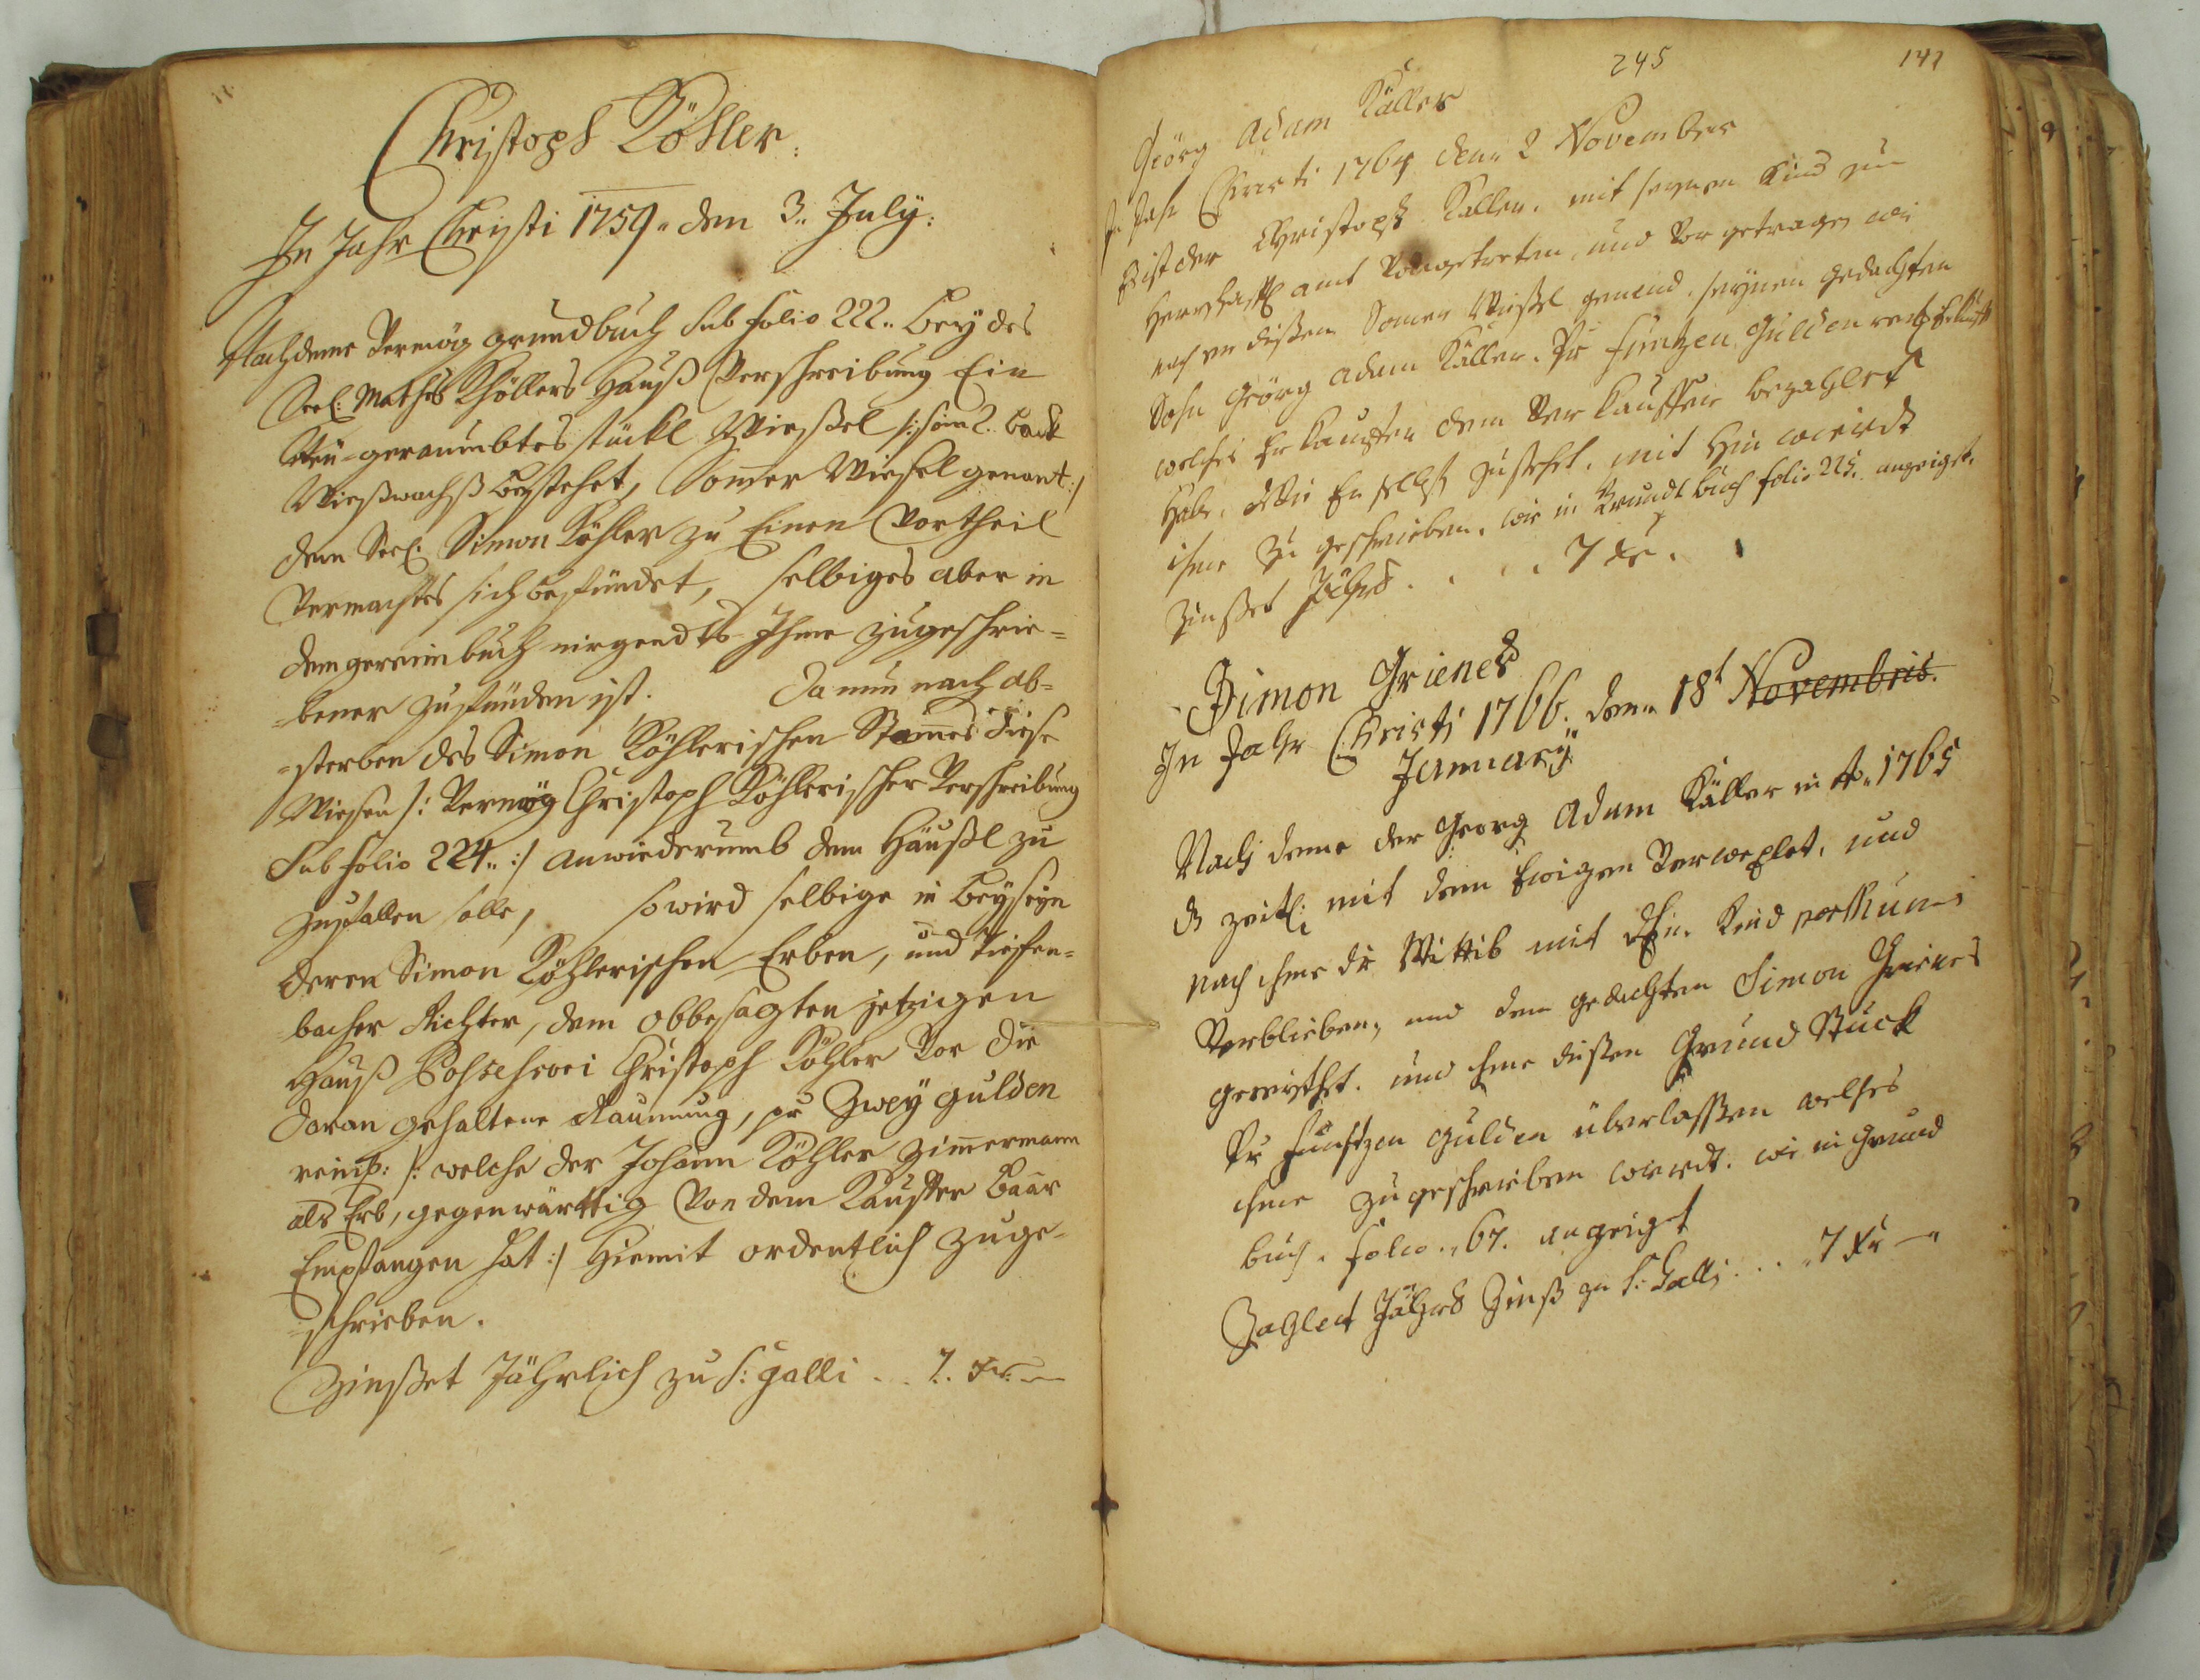 Christoph Köhler:
In Jahr Christi 1759„ den 3„ July:
Nachdeme Vermög grundbuch sub folio 222„ bey des
Seel: Mathes Khöllers Hauß Verschreibung Ein
Neü-geraumbtes stückl Wießel /: so in 2.
Wießwachß bestehet, Somer Wiesel genant :/
dem Seel: Simon Köhler zu Einen Vortheil
Vermachtes sich befündet, selbiges aber in
dem gereimbuch nirgendts Ihme zugeschrie=
=bener zu fünden ist. Da nun nach ab=
=sterben des Simon Köhlerischen Stames diese
Wiesen /: Vermög Christoph Köhlerischer Verschreibung
Sub folio 224„ :/ anwiederumb dem Häußl zu
zufallen solle, so wird selbige in beyseyn
deren Simon Köhlerischen Erben, und Tiefen=
bacher Richter, dem obbesagten jetzigen
Hauß Possessori Christoph Köhler Vor die
daran gehaltene Raumung, pr Zwey gulden
reinisch: /: welche der Johann Köhler Zimermann
als Erb, gegenwärttig Von dem Kauffer baar
Empfangen hat :/ Hiemit ordentlich zuge=
=schrieben.
Zinßet Jährlich zu S: galli . . . 7. Kr.
245
141
Geörg Adam Käller
In Jahr Christi 1764 den 2 November
Ist der Christoph Käller, mit seynem Kind zum
Herrschaftl amt Vorgetreten, und Vor getragen wie
er dißen Somer Wießl genend, seynen gedachten
Sohn Geörg Adam Käller. Pr funfzen Gulden
welches Er Kauffer dem Ver Kauffer bezahlet
Habe. Wie Er selbst zustehet. mit Hin wierdt
ihme zu geschrieben, wie in Grundt buch folio 215. angeiget.
Zinßet Jährl . . . . 7 Kr.
Simon Grienes
In Jahr Christi 1766. den„ 18t Novembris.
January
Nach deme der Georg Adam Käller in A„ 1765
d zeitl: mit dem Ewigen Verwexlet, und
nach ihme die Wittib mit Kind posthum
Verblieben, und dem gedachten Simon Grienes
geereichet. und ihme dissen Grund Stuck
Pr funfzen gulden überlassen welches
ihme zugeschrieben wierdt. wie in Grund
buch. folio„ 67. angeiget
Zahlet Jährl Zinß zu S: Galli . . . 7 Kr